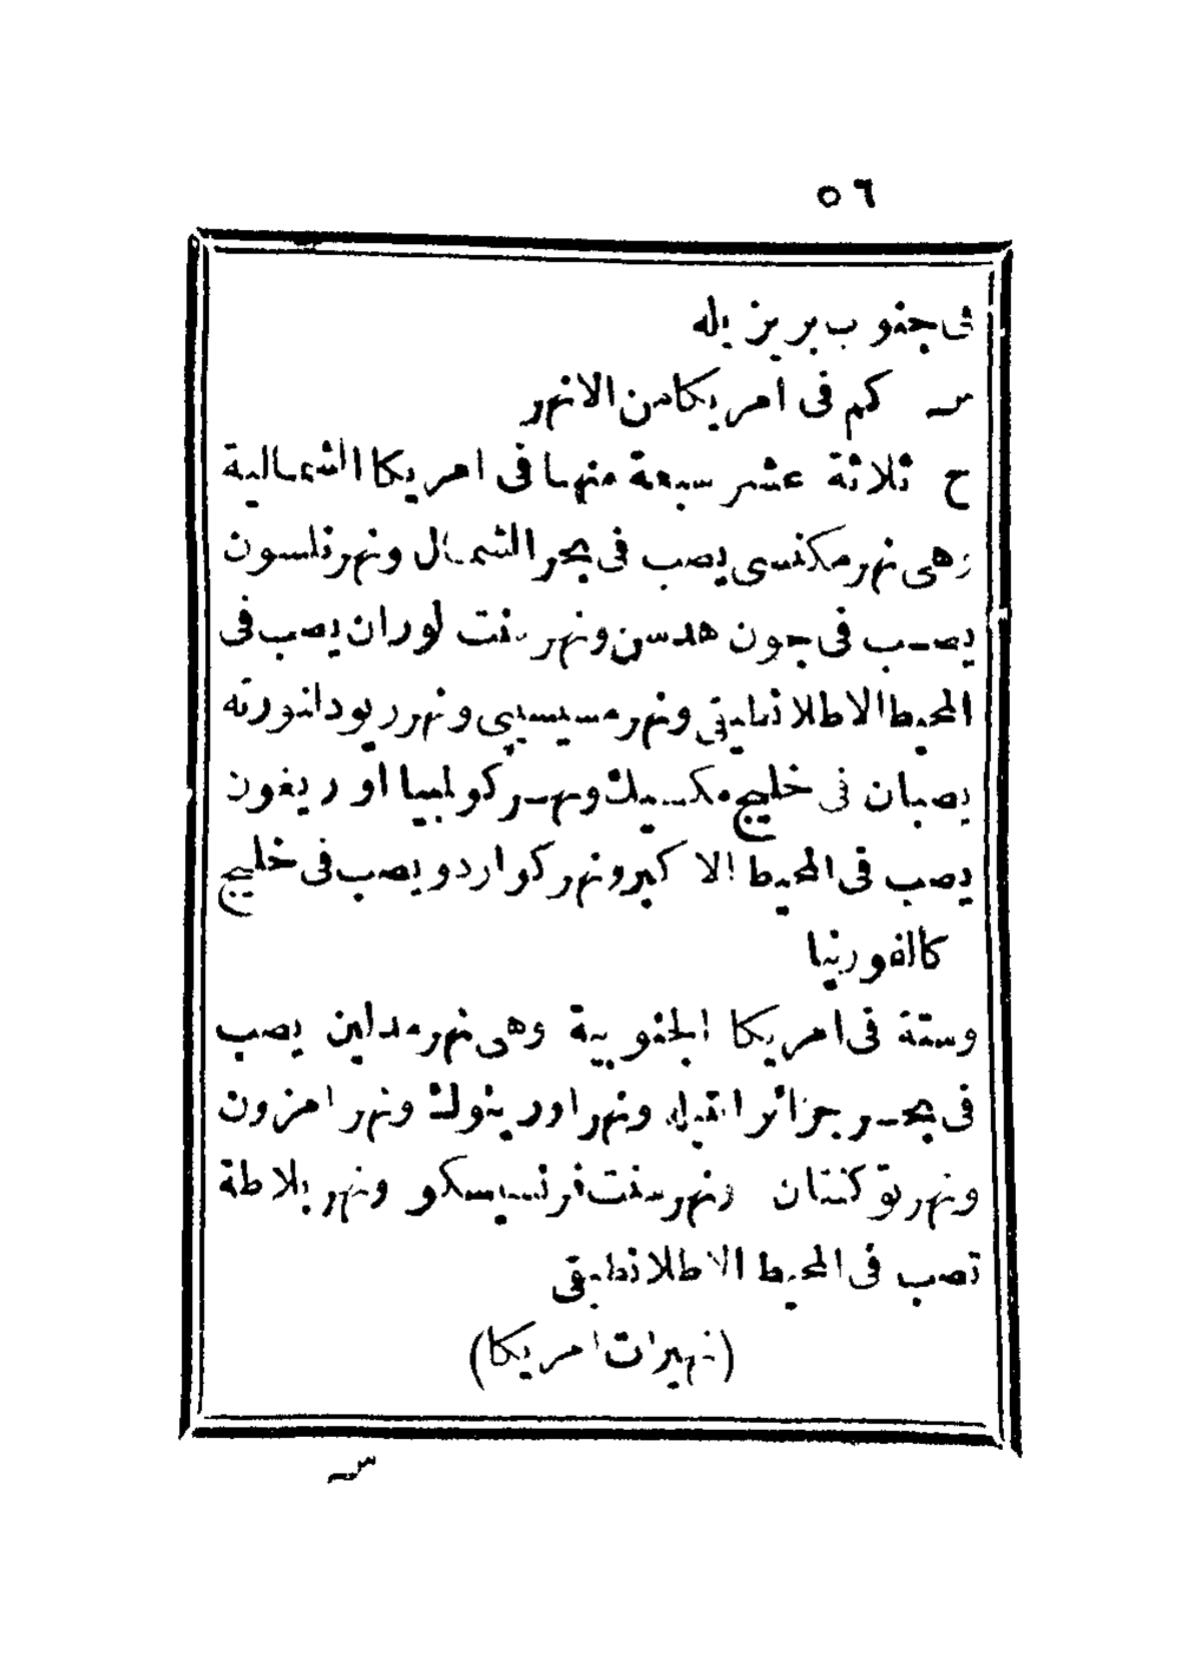 ٥٦
فى جنوب بريزيله
س كم فى امريكا من الانهر
ج ثلاثة عشر سبعة منها فى امريكا الشمالية
وهى نهر مكنسى يصب فى بحر الشمال ونهر نلسون
يصب فى جون هدسن ونهر سنت لوران يصب فى
المحيط الاطلانطيقى ونهر مسيسيپى ونهر ريودانورته
يصبان فى خليج مكسيك ونهر كولمبيا او ريغون
يصب فى المحيط الاكبر ونهر كواردو يصب فى خليج
كالفورنيا
وستة فى امريكا الجنوبية وهى نهر مدلين يصب
فى بحر جزائر انتيله ونهر اورينوك ونهر امزون
ونهر توكنتان ونهر سنت فرنسيسكو ونهر بلاطة
تصب فى المحيط الاطلانطيقى
(نهيرات امريكا)
س